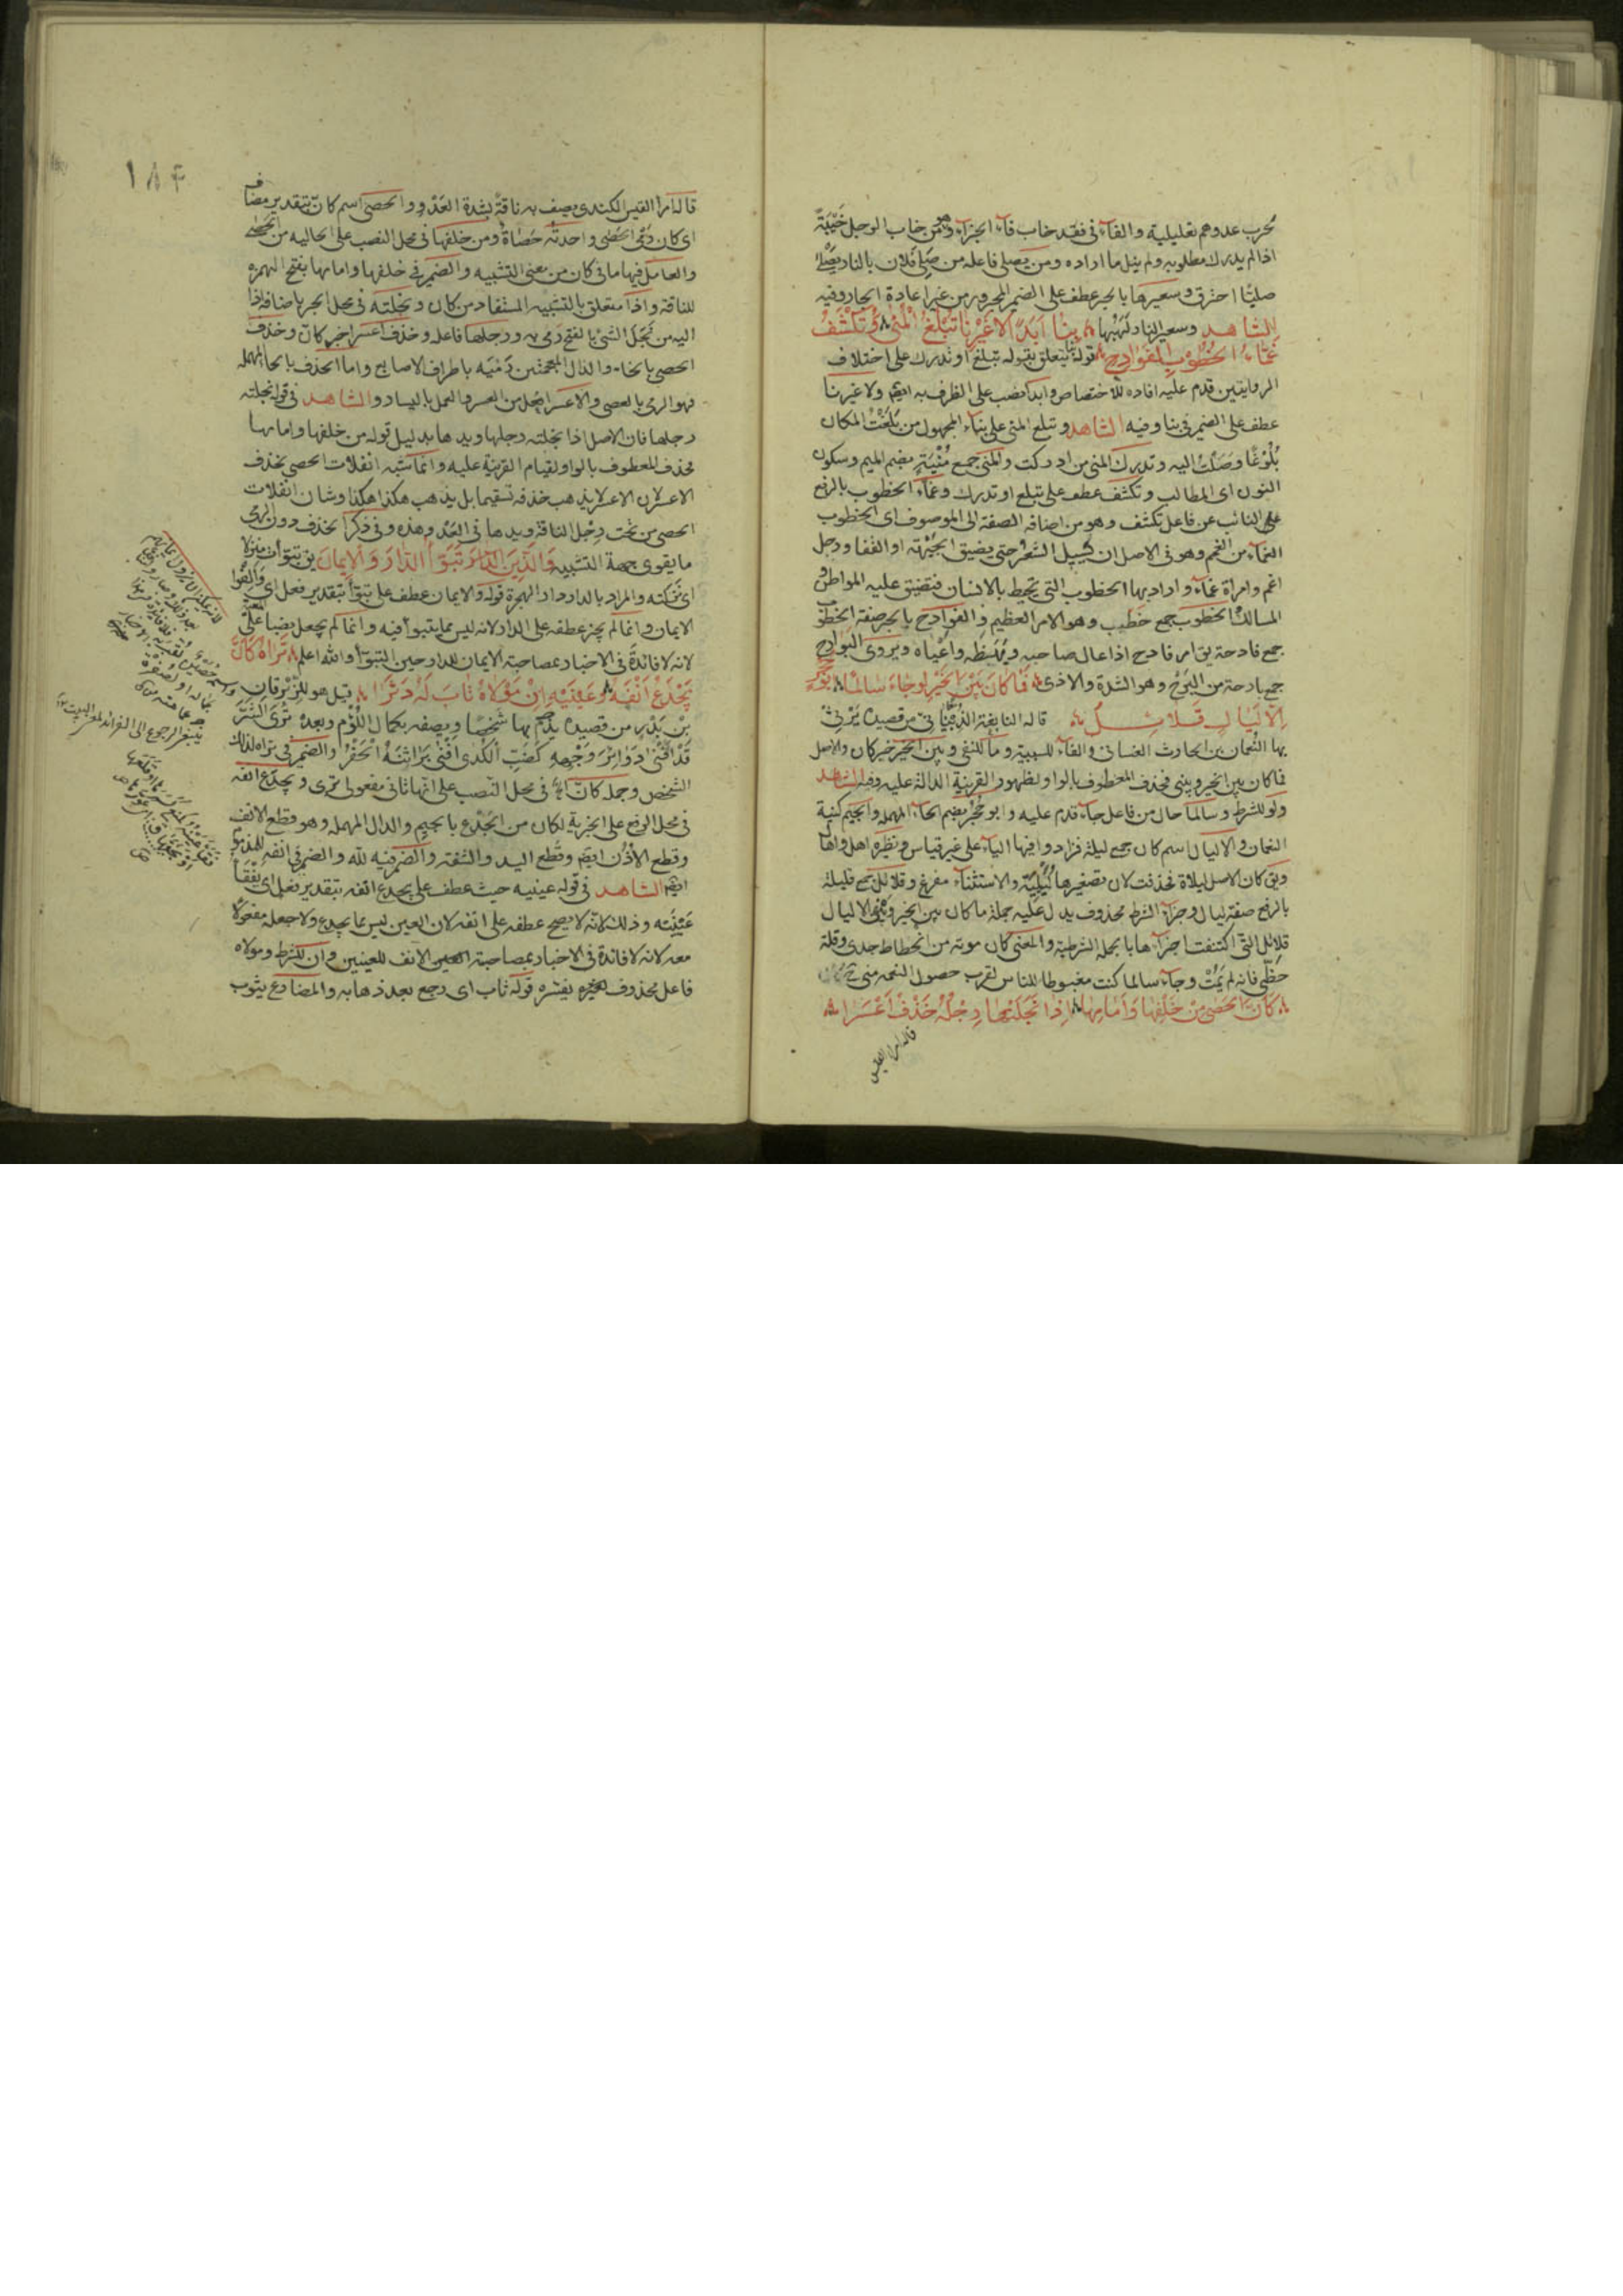 نحرب عدوهم تعليلية والفآء فى فقد خاب فآء الجزآء وهو من خاب الرجل خَيْبَةً
اذا لم يدرك مطلوبه ولم ينل ما اراده ومن يصلى فاعله من صَلِىَ فلان بالنار يَصْلَى
صليًّا احترق وسعيرها بالجر عطف على الضمير المجرور من غير اعادة الجار وفيه
الشاهد وسعير النار لَهَبُهَا بِنَا اَبَدًا لَا غَيْرِنَا تُبْلَغُ الْمُنَى وَتُكْشَفُ
غَمَّاءُ الْخُطُوْبِ الْفَوَادِحِ قوله بنا يتعلق بقوله تبلغ او تدرك على اختلاف
الروايتين قدم عليه افاده للاختصاص وابدا نصب على الظرف به ايضا ولا غيرنا
عطف على الضمير فى بنا وفيه الشاهد وتبلغ المنى على بنآء المجهول من بَلَغْتُ المكان
بُلُوْغًا وَصَلْتُ اليه وتدرك المنى من ادركت والمنى جمع مُنْيَةٍ بضم الميم وسكون
النون اى المطالب وتكشف عطف على تبلغ او تدرك وغمآء الخطوب بالرفع
على النائب عن فاعل تكشف وهو من اضافة الصفة الى الموصوف اى الخطوب
الغمآء من الغمم وهو فى الاصل ان يسيل الشعر حتى يضيق الجبهة او القفا ورجل
اغم وامراة غمآء واراد بها الخطوب التى تحيط بالانسان فتضيق عليه المواطن و
المسالك الخطوب جمع خَطْب وهو الامر العظيم والفوادح بالجر صفة الخطوب
جمع فادحة يق امر فادح اذا عال صاحبه واعياه ويروى البوارح
جمع بارحة من البَرْح وهو الشدة والاذى فَمَا كَانَ بَيْنَ الْخَيْرِ لَوْ جَاءَ سَالِمًا اَبُوْ حُجُرٍ
اِلَّا لَيَالٍ قَلَائِلُ قاله النابغة الذُّبْيَانِىّ من قصيدة يَرْثِىْ
بها النُّعمان بن الحارث الغسانى والفآء للسببية وما للنفى وبين الخير خبر كان والاصل
فما كان بين الخير وبينى فحذف المعطوف بالواو لظهور القرينة الدالة عليه وفيه الشاهد
ولو للشرط وسالما حال من فاعل جآء قدم عليه وابو حُجُر بضم الحآء المهملة والجيم كنية
النعمان والا ليال اسم كان جمع ليلة فزادوا فيها اليآء على غير قياس ونظيره اهل واهال
ويق كان الاصل ليلاة فحذفت لان تصغيرها لُيَيْلِيَة والاستثنآء مفرغ وقلائل جمع قليلة
بالرفع صفة ليال وجزآء الشرط محذوف يدل عليه جملة ما كان بين الخير وبينى الا ليال
قلائل التى اكتنفت اجزآءها بالجملة الشرطية والمعنى كان موته من انحطاط جدى وقلة
حظّى فانه لم يَمُتْ وجآء سالما كنت مغبوطا للناس لقرب حصول النعمة منى
كَأَنَّ الْحَصَى مِنْ خَلْفِهَا وَاَمَامِهَا اِذَا نَجَلَتْهَا رِجْلُهَا خَذْفُ اَعْسَرَا
قاله امرؤ القيس
١٨٤
قاله امرأ القيس الكندى يصف به ناقة بشدة العَدْو والحصى اسم كانّ بتقدير مضاف
اى كان رَمْىَ الحصى واحدته حَصَاةٌ ومن خلفها فى محل النصب على الحاليه من الحصى
والعامل فيها ما فى كان من معنى التشبيه والضمير فى خلفها وامامها بفتح الهمزه
للناقة واذا متعلق بالتشبيه المستفاد من كان ونجلته فى محل الجر باضافة اذا
اليه من نَجَلَ الشئ بالفتح رمى به ورجلها فاعله وخذف اعسر اخبر كانّ وخذف
الحصى بالخاء والذال المعجمتين رَمْيُه باطراف الاصابع واما الحذف بالحاء المهملة
فهو الرمى بالعصى والاعسر افعل من العسر والعمل باليسار والشاهد فى قوله نجلته
رجلها فان الاصل اذا نجلته رجلها ويدها بدليل قوله من خلفها وامامها
فحذف المعطوف بالواو لقيام القرينة عليه وانما شبه انفلات الحصى بخذف
الاعسر لان الاعسر لا يذهب خذفه تسقيما بل يذهب هكذا هكذا وشان انفلات
الحصى من تحت رِجْل الناقة ويدها فى العَدْو هذه وفى ذكر الخذف دون الرمى
ما يقوى جهة التشبيه وَالَّذِيْنَ تَبَوَّؤُا الدَّارَ وَالْاِيْمَانَ يق تبوأت منزلا
اى تمكنته والمراد بالدار دار الهجرة قوله والايمان عطف على تبوأ بتقدير فعل اى وَاَلِفُوا
الايمان وانما لم يجز عطفه على الدار لانه ليس مما يتبوأ فيه وانما لم يجعل نصبا على المعية
لانه لا فائدة فى الاخبار بمصاحبة الايمان للدار حين التبوّأ والله اعلم تَرَاهُ كَاَنَّ
يَجْدَعُ اَنْفَهُ وَعَيْنَيْهِ اِنْ مَوْلَاهُ ثَابَ لَهُ وَفْرَا قيل هو للزِّبْرِقان
بْنِ بَدْرٍ من قصيدة يذم بها شخصًا ويصفه بكمال اللؤْم وبعده تَرَى الشَّرَّ
قَدْ اَفْنَى دَوَائِرَ وَجْهِهِ كَضَبِّ الْكُدَى اَفْنَى بَرَاثِنَهُ الْحَفْرُ والضمير فى تراه لذلك
الشخص وجملة كان اه فى محل النصب على انها ثانى مفعولى ترى ويجدع انفه
فى محل الرفع على الخبرية لكان من الجَدْع بالجيم والدال المهملة وهو قطع الانف
وقطع الاُذُن ايضا وقطع اليد والشفة والضمير فيه لله والضمير فى انفه للمذموم
ايضا الشاهد فى قوله عينيه حيث عطف على يجدع انفه بتقدير فعل اى يَفْقَأُ
عَيْنَيْه وذلك لانّه لا يصح عطفه على انفه لان العين ليس مما يجدع ولا جعله مفعولا
معه لانه لا فائدة فى الاخبار بمصاحبة الانف للعينين وان للشرط ومولاه
فاعل محذوف يفسره قوله ثاب اى رجع بعد ذهابه والمضارع يثوب